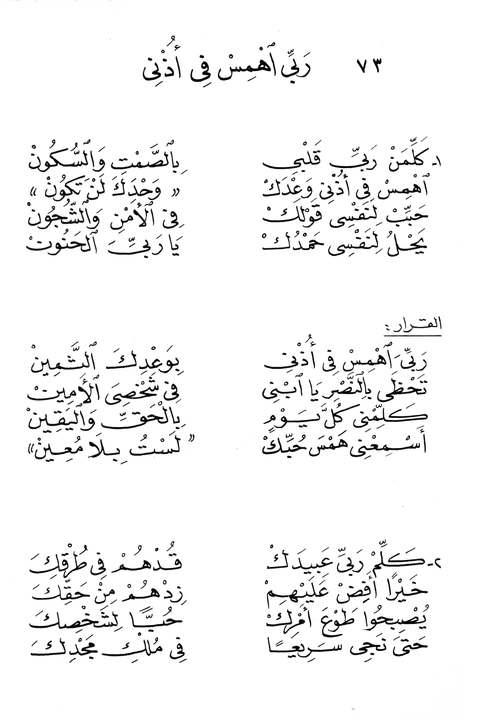 ٧٣ رَبِّي ٱهْمِسْ فِي أُذْنِي
١- كَلِّمَنْ رَبِّي قَلْبِي بِالصَّمْتِ وَالسُّكُونْ
ٱهْمِسْ فِي أُذْنِي وَعْدَكْ « وَحْدَكَ لَنْ تَكُونْ »
حَبِّبْ لِنَفْسِي قَوْلَكْ فِي الأَمْنِ وَالشُّجُونْ
يَحْلُ لِنَفْسِي حَمْدُكْ يَا رَبِّيَ الحَنُونْ
القرار :
رَبِّيَ ٱهْمِسْ فِي أُذْنِي بِوَعْدِكَ الثَّمِينْ
تَحْظَى بِالنَّصْرِ يَا ٱبْنِي فِي شَخْصِيَ الأَمِينْ
كَلِّمْنِي كُلَّ يَوْمٍ بِالحَقِّ وَاليَقِينْ
أَسْمِعْنِي هَمْسَ حُبِّكْ « لَسْتُ بِلَا مُعِينْ »
٢- كَلِّمْ رَبِّي عَبِيدَكْ قُدْهُمْ فِي طُرْقِكَ
خَيْرًا أَفِضْ عَلَيْهِمْ زِدْهُمْ مِنْ حَقِّكَ
يُصْبِحُوا طَوْعَ أَمْرِكْ حُبًّا لِشَخْصِكَ
حَتَّى نَجِي سَرِيعًا فِي مُلْكِ مَجْدِكَ